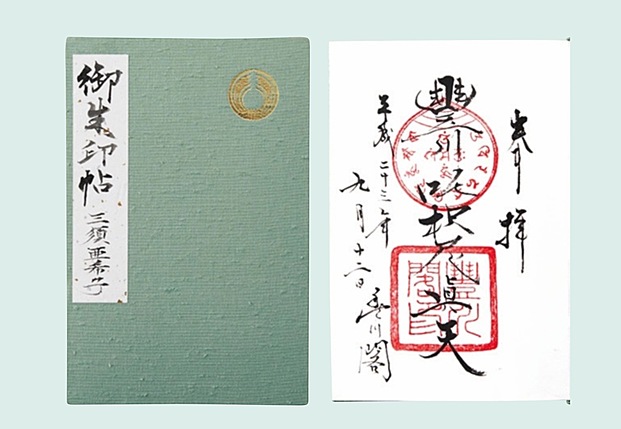 御朱印帖
三須亜希子
奉拝
豐川吒枳尼眞天
平成二十三年
九月十二日 豊川閣